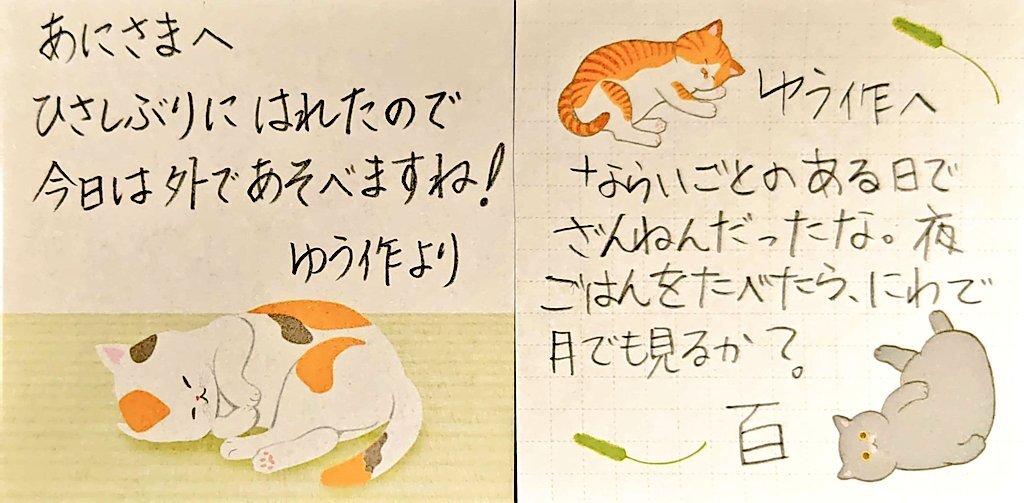 あにさまへ
ひさしぶりに はれたので
今日は外であそべますね!
ゆう作より
ゆう作へ
ならいごとのある日で
ざんねんだったな。夜
ごはんをたべたら、にわで
月でも見るか?
百